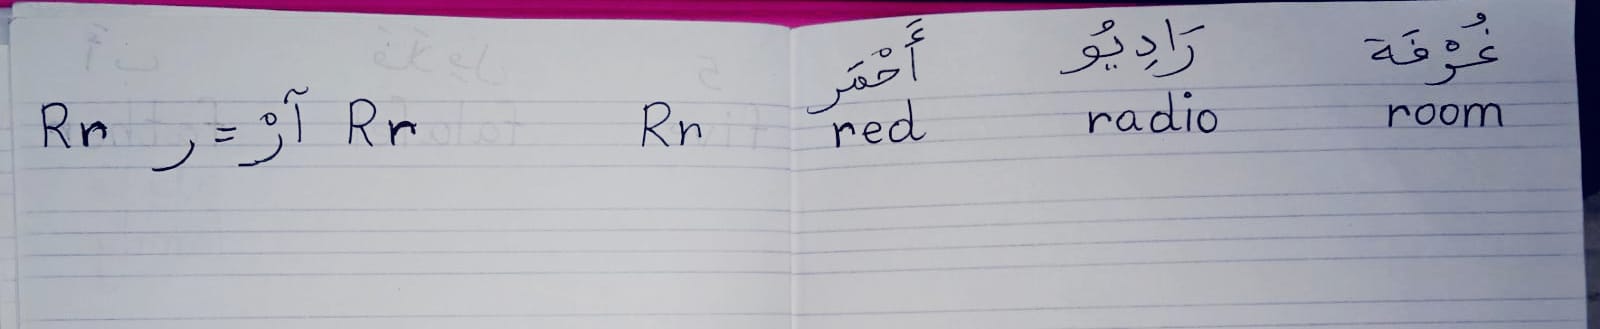 أَحْمَر رَادِيُو غُرْفَة
Rr ر = آرْ Rr Rr red radio room